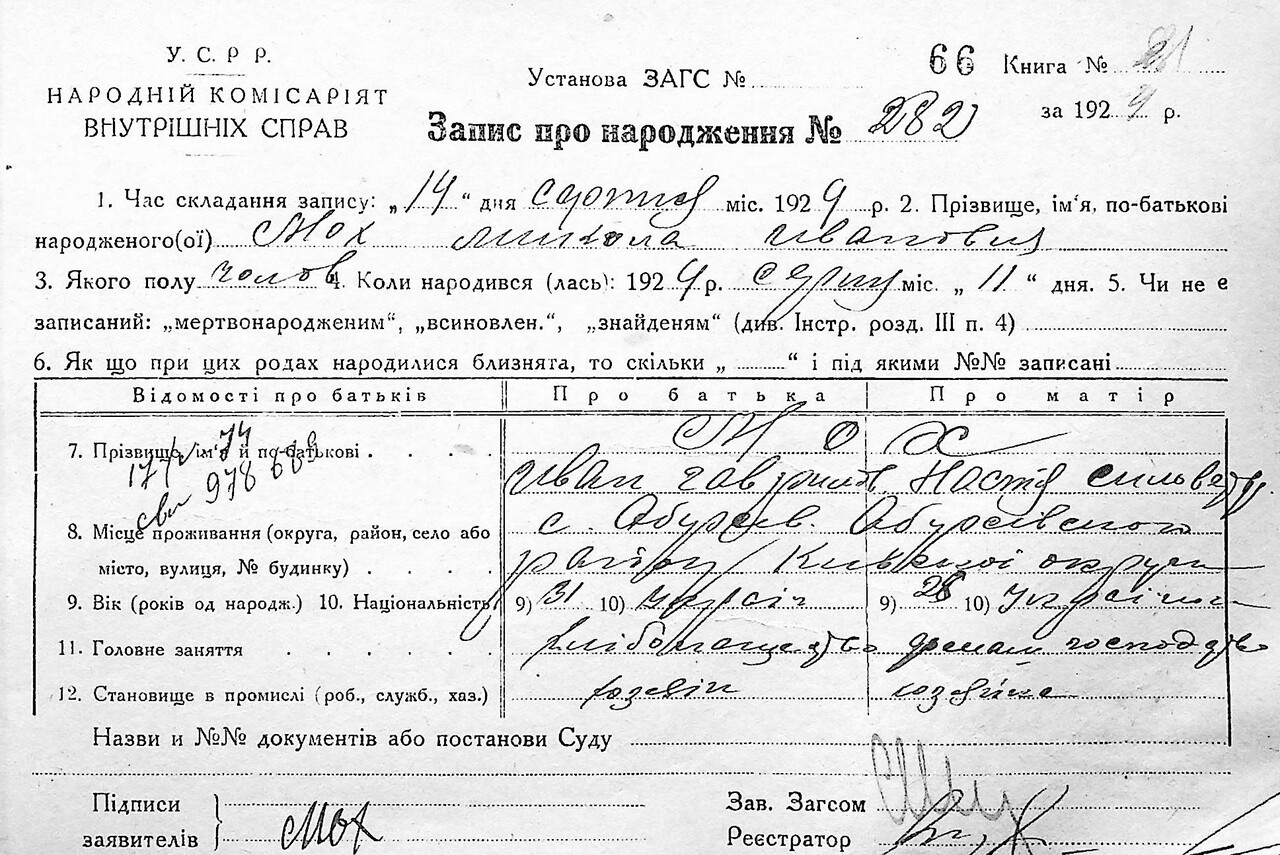 У. С. Р Р.
НАРОДНІЙ КОМІСАРІЯТ
ВНУТРІШНІХ СПРАВ
Установа ЗАГС № 66 Книга №
Запис про народження № 282 за 1929 р.
1. Час складання запису: „14“ дня серпня міс. 1929 р. 2. Прізвище, ім'я, по-батькові
народженого(ої) Мох Микола Иванович
3. Якого полу чолов 4. Коли народився (лась): 1929 р. серпн міс. „11“ дня. 5. Чи не є
записаний: „мертвонародженим“, „всиновлен.“, „знайденям“ (див. Інстр. розд. III п. 4)
6. Як що при цих родах народилися близнята, то скільки „ “ і під якими №№ записані
Відомості про батьків Про батька Про матір
7. Прізвище, ім'я й по-батькові Мох
Иван Гаврилов Настя
8. Місце проживання (округа, район, село або с. Обухів. Обухівского
місто, вулиця, № будинку) району Київської округи
9. Вік (років од народж.) 10. Національність 9) 31 10) 9) 28 10)
11. Головне заняття хліборащество
12. Становище в промислі (роб., служб., хаз.) хозяін хозяйка
Назви и №№ документів або постанови Суду
Підписи Зав. Загсом
заявителів Мох Реєстратор